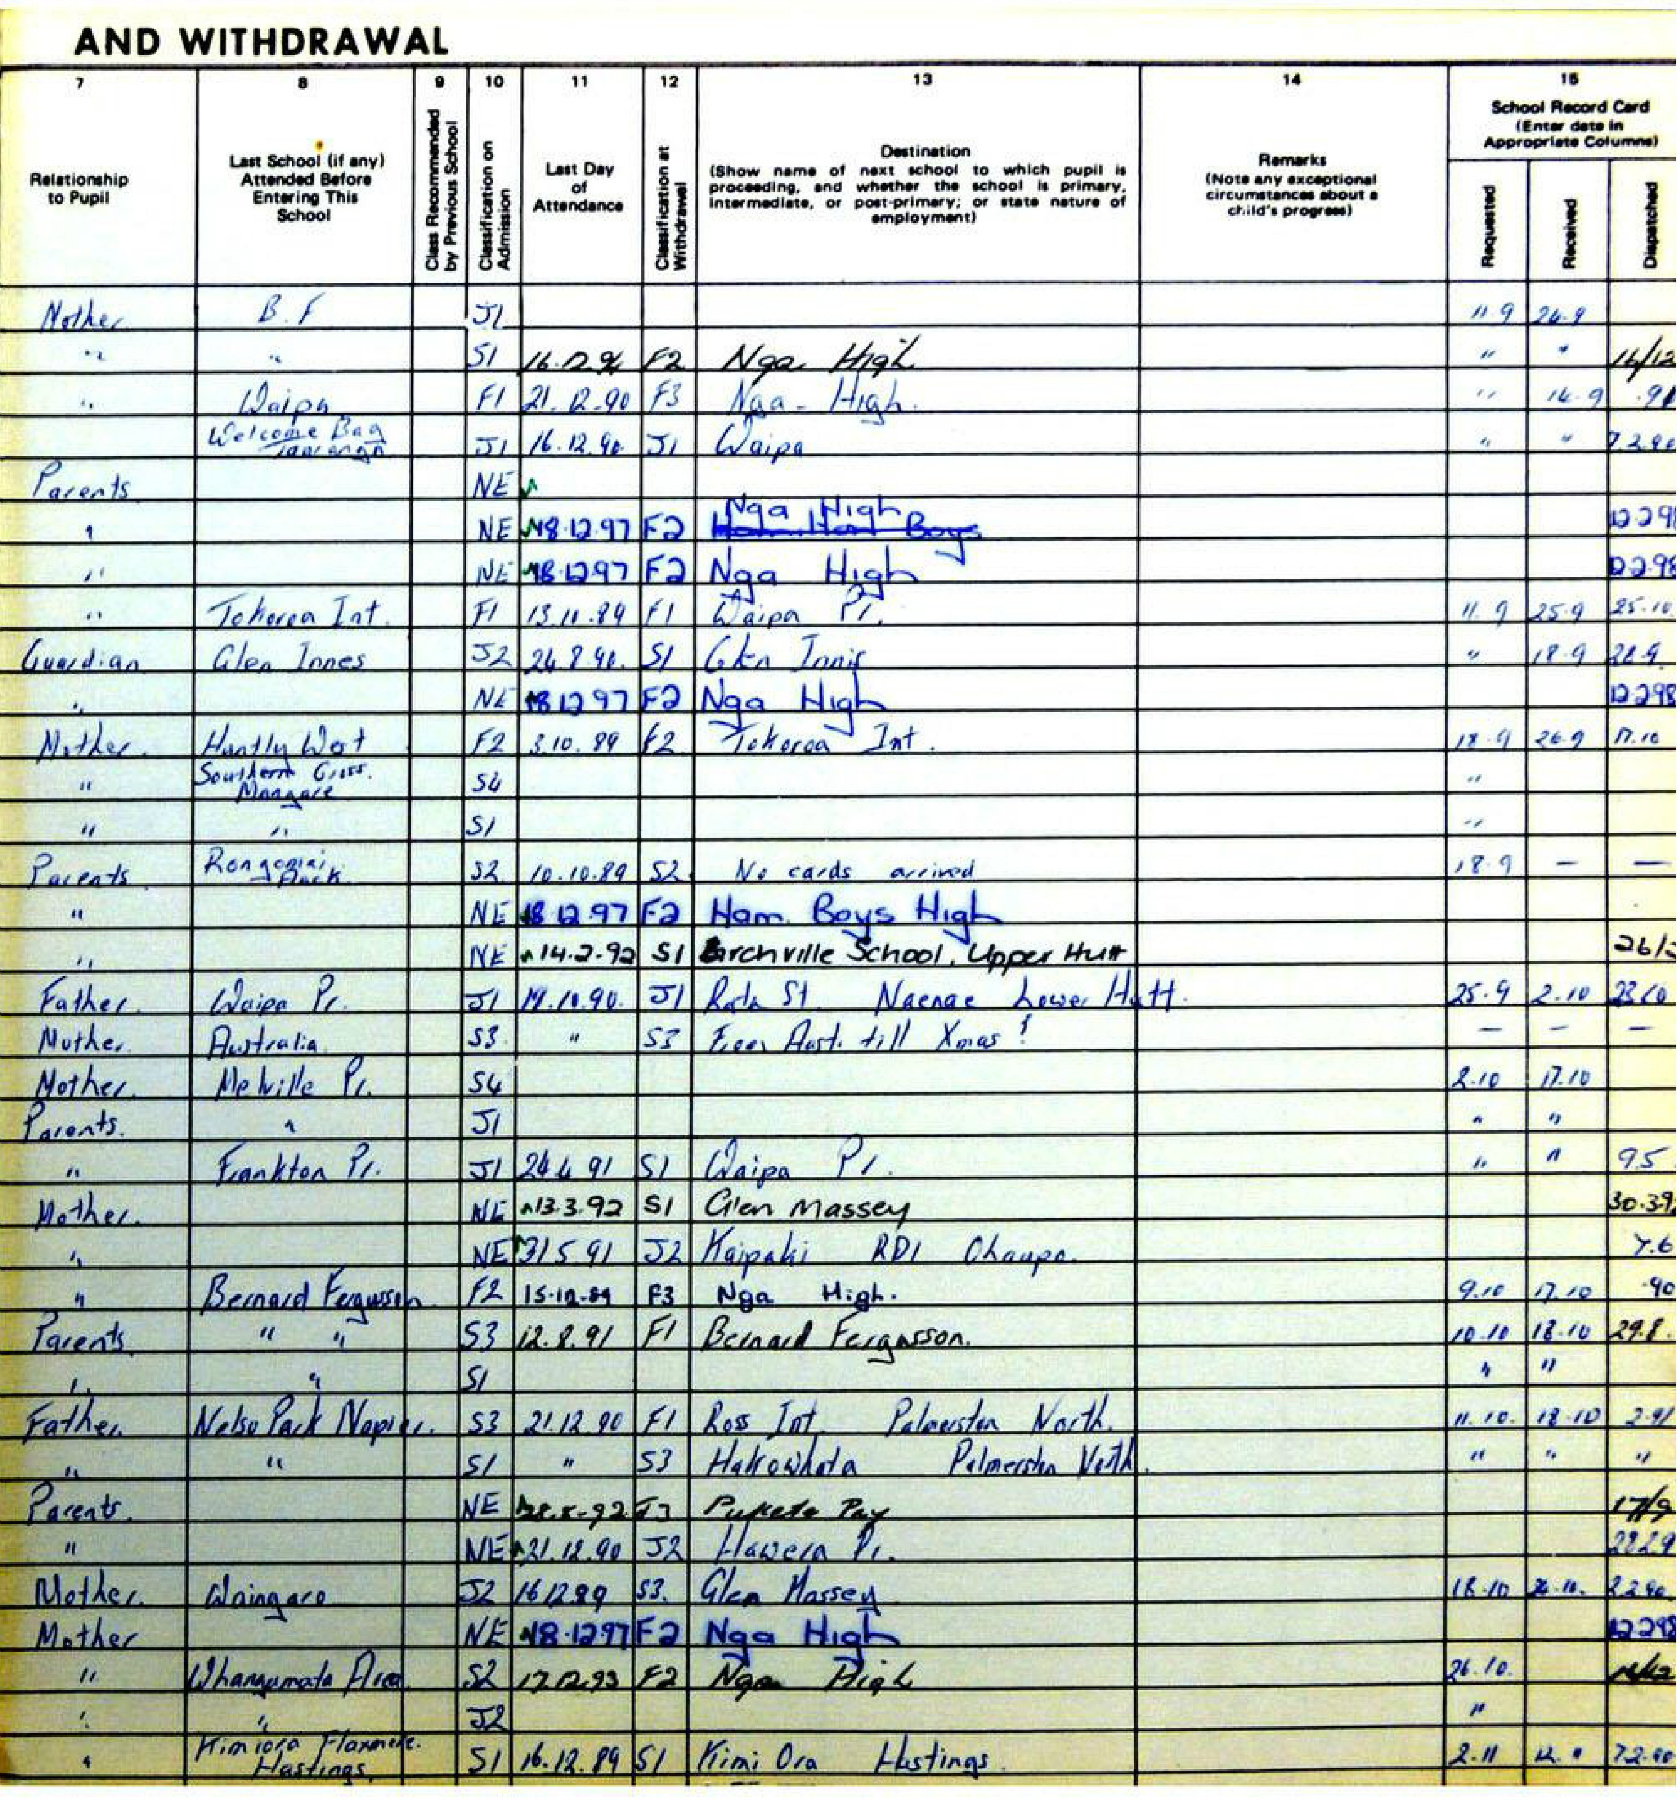 AND WITHDRAWAL
7 8 9 10 11 12 13 14 15
Relationship to Pupil
Last School (if any) Attended Before Entering This School
Class Recommended by Previous School
Classification on Admission
Last Day of Attendance
Classification at Withdrawal
Destination
(Show name of next school to which pupil is proceeding, and whether the school is primary, intermediate, or post-primary; or state nature of employment)
Remarks
(Note any exceptional circumstances about a child's progress)
School Record Card
(Enter date in Appropriate Columns)
Requested Received Dispatched
Mother B.F J1 11.9 26.9
" " S1 16.12.94 F2 Nga. High " " 16/12
" Waipa F1 21.12.90 F3 Nga - High. " 14.9 .91
Welcome Bay Tauranga J1 16.12.90 J1 Waipa " " 7.2.90
Parents NE
" NE 18.12.97 F2 Nga High Hamilton Boys 12 2 98
" NE 18.12.97 F2 Nga High 12 2 98
" Tokoroa Int. F1 13.11.89 F1 Waipa Pr. 11.9 25.9 25.10
Guardian Glen Innes J2 24.8.90. S1 Glen Innis " 18.9 28.9
" NE 18 12 97 F2 Nga High 12 2 98
Mother. Huntly West F2 3.10.89 F2 Tokoroa Int. 18.9 26.9 17.10
" Southern Cross. Mangare S4 "
" " S1 "
Parents Rongomai Park S2 10.10.89 S2 No cards arrived 18.9 — —
" NE 18 12 97 F2 Ham. Boys High
" NE 14.2.92 S1 Birchville School, Upper Hutt 26/2
Father. Waipa Pr. J1 19.10.90. J1 Rata St. Naenae Lower Hutt. 25.9 2.10 23.10
Mother. Australia S3. " S3 From Aust. till Xmas! — — —
Mother. Melville Pr. S4 2.10 17.10
Parents. " J1 " "
" Frankton Pr. J1 24 4 91 S1 Waipa Pr. " " 9.5
Mother. NE 13.3.92 S1 Glen Massey 30.3.92
" NE 31 5 91 J2 Kaipaki RD1 Ohaupo. 7.6
" Bernard Fergusson F2 15.12.89 F3 Nga High. 9.10 17.10 .90
Parents " " S3 12.8.91 F1 Bernard Fergusson. 10.10 18.10 29.8.
" " S1 " "
Father. Nelso Park Napier. S3 21.12.90 F1 Ross Int. Palmerston North. 11.10. 18.10 2.91
" " S1 " S3 Hakowhata Palmerston North. " " "
Parents. NE 28.8.92 J3 Pukete Pay 17/9
" NE 21.12.90 J2 Hawera Pr.
Mother. Waingaro J2 16 12 89 S3. Glen Massey 18.10 26.10. 2.2.90
Mother NE 18.12 97 F2 Nga High 12 2 98
" Whangamata Area S2 17.12.93 F2 Nga High 26.10.
" " J2 "
" Kimiora Flaxmere. Hastings. S1 16.12.89 S1 Kimi Ora Hastings 2.11 7.2.90